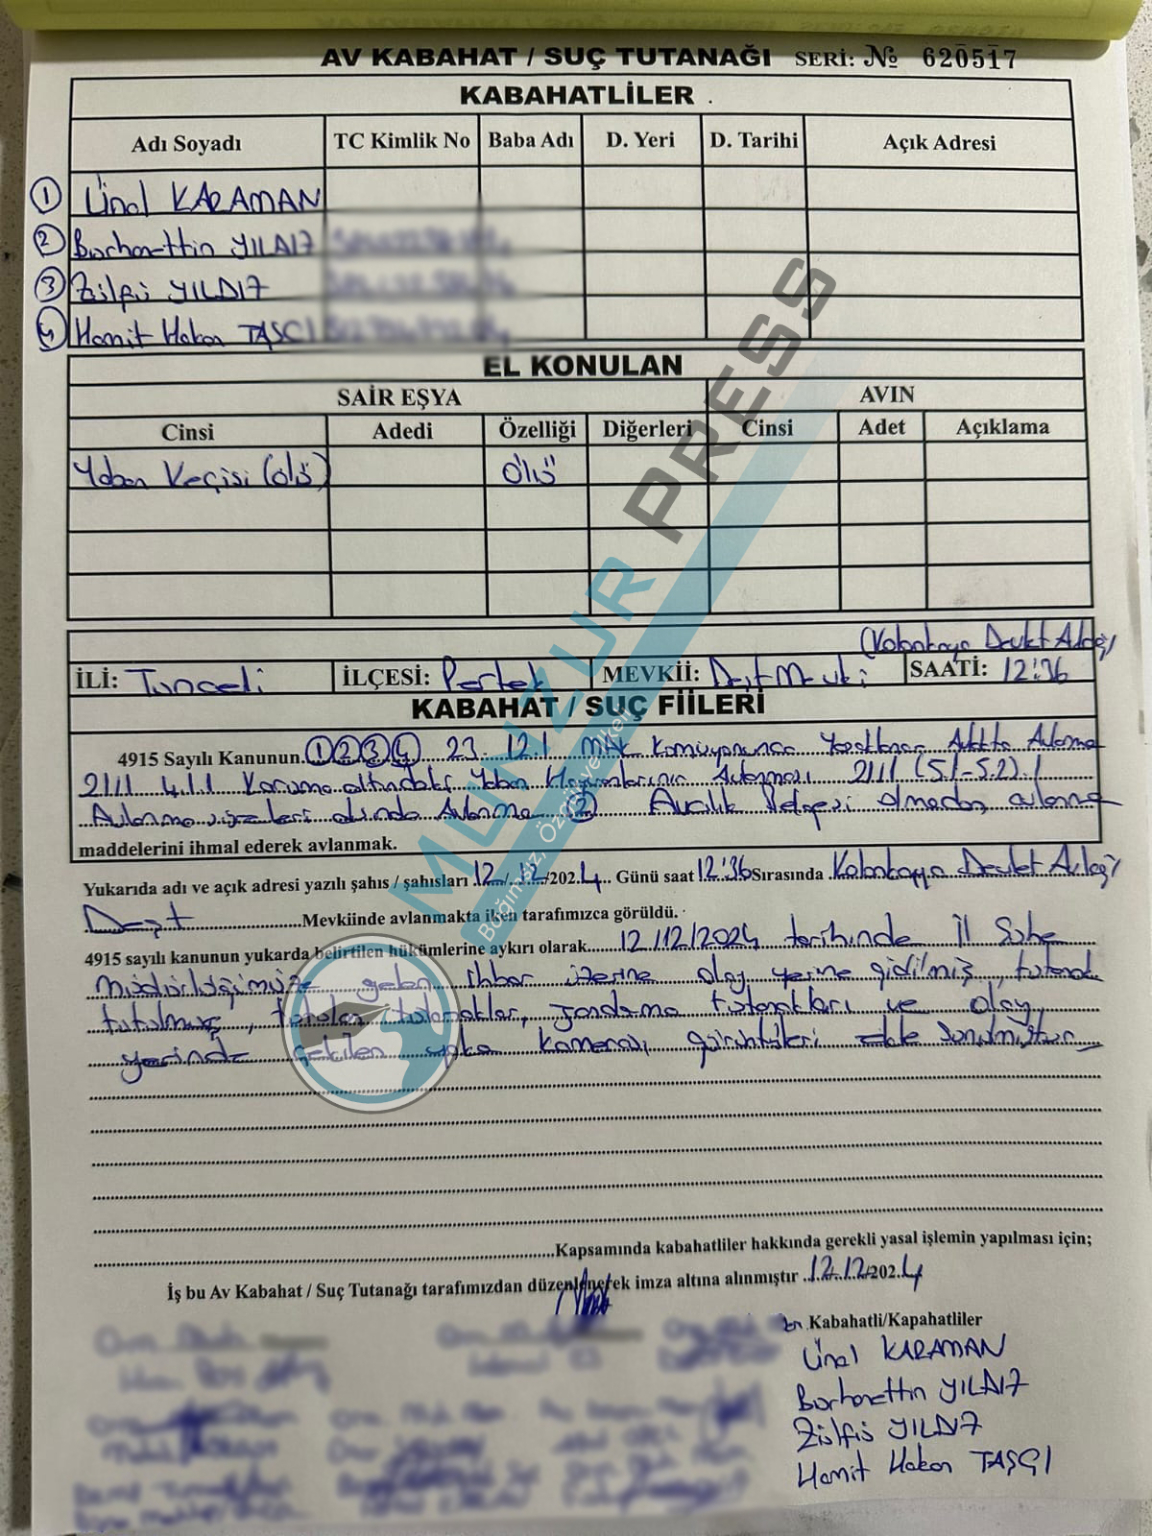 AV KABAHAT / SUÇ TUTANAĞI SERİ: № 620517
KABAHATLİLER
Adı Soyadı TC Kimlik No Baba Adı D. Yeri D. Tarihi Açık Adresi
1 Ünal KARAMAN
2 Burhanettin YILDIZ
3 Zülfü YILDIZ
4 Hamit Hakan TAŞCI
EL KONULAN
SAİR EŞYA AVIN
Cinsi Adedi Özelliği Diğerleri Cinsi Adet Açıklama
Yaban Keçisi (ölü) Ölü
(Kolankaya Devlet Avlağı)
İLİ: Tunceli İLÇESİ: Pertek MEVKİİ: Deşt Mevkii SAATİ: 12:36
KABAHAT / SUÇ FİİLERİ
4915 Sayılı Kanunun 1 2 3 4 23. 12.1 MAK Komisyonunca Yasaklanan Avlakta Avlanma
21/1 4.1.1 Koruma altındaki Yaban Hayvanlarının Avlanması 21/1 (5.1-5.2).1
Avlanma süreleri dışında Avlanma 2 Avcılık Belgesi olmadan avlanma
maddelerini ihmal ederek avlanmak.
Yukarıda adı ve açık adresi yazılı şahıs / şahısları 12/12/2024 Günü saat 12:36 Sırasında Kolankaya Devlet Avlağı
Deşt Mevkiinde avlanmakta iken tarafımızca görüldü.
4915 sayılı kanunun yukarda belirtilen hükümlerine aykırı olarak 12/12/2024 tarihinde İl Şube
Müdürlüğümüze gelen ihbar üzerine olay yerine gidilmiş, tutanak
tutulmuş, tutulan tutanaklar, jandarma tutanakları ve olay
yerinde çekilen yaka kamerası görüntüleri ekte sunulmuştur
Kapsamında kabahatliler hakkında gerekli yasal işlemin yapılması için;
İş bu Av Kabahat / Suç Tutanağı tarafımızdan düzenlenerek imza altına alınmıştır 12.12.2024
Kabahatli/Kapahatliler
Ünal KARAMAN
Burhanettin YILDIZ
Zülfü YILDIZ
Hamit Hakan TAŞÇI
MUNZUR PRESS
Bağımsız, Özgür ve İlkeli